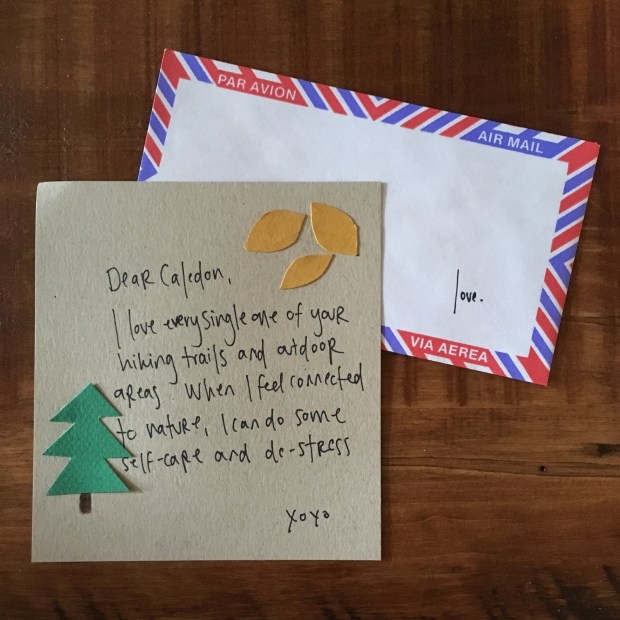 PAR AVION
AIR MAIL
love.
VIA AEREA
Dear Caledon,
I love every single one of your
hiking trails and outdoor
areas. When I feel connected
to nature, I can do some
self-care and de-stress
xoxo